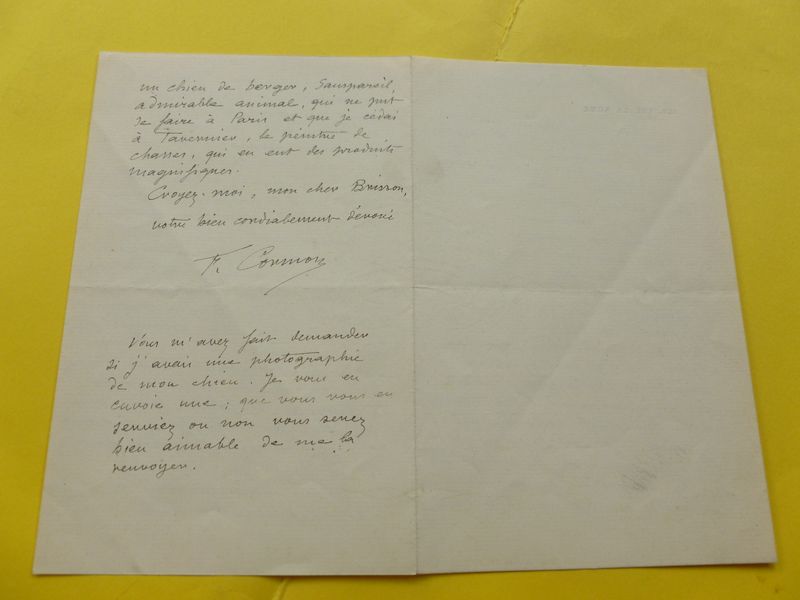 un chien de berger, Sanspareil,
admirable animal, qui ne put
se faire à Paris et que je cédai
à Tavernier, le peintre de
chasses, qui en eut des produits
magnifiques.
Croyez-moi, mon cher Brisson,
votre bien cordialement dévoué
F. Cormon
Vous m'avez fait demander
si j'avais une photographie
de mon chien. Je vous en
envoie une; que vous vous en
serviez ou non vous serez
bien aimable de me la
renvoyer.